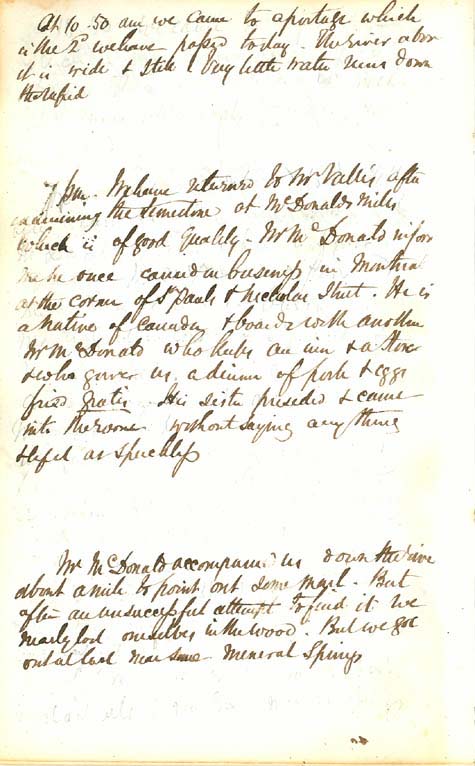 At 10.50 am we came to a portage which
is the 2d we have passed today. The river above
it is wide & still & very little water runs down
the rapid
7 pm. We have returned to Mr Vallis after
examining the limestone at McDonalds Mills
which is of good quality. Mr McDonald inform
me he once carried on business in Montreal
at the corner of St Pauls & Nicholas Street. He is
a native of Canada & boards with another
Mr McDonald who keeps an inn & a store
& who gave us a dinner of pork & eggs
fried gratis. His sister presided & came
into the room without saying any thing
& left as speechless
Mr McDonald accompanied us down the river
about a mile to point out some marl. But
after an unsuccessful attempt to find it we
nearly lost ourselves in the wood. But we got
out at last near some mineral Springs